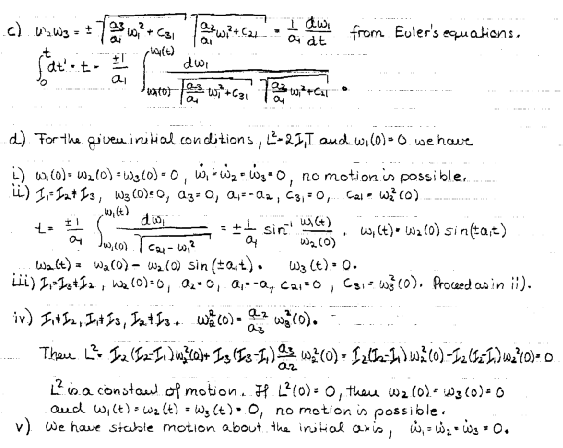 c) ω₂ω₃ = ± √(a₃/a₁ ω₁² + C₃₁) √(a₂/a₁ ω₁² + C₂₁) = 1/a₁ dω₁/dt from Euler's equations.
∫₀ᵗ dt' = t = ±1/a₁ ∫_{ω₁(0)}^{ω₁(t)} dω₁ / (√(a₃/a₁ ω₁² + C₃₁) √(a₂/a₁ ω₁² + C₂₁)) .
d) For the given initial conditions, L²=2I₁T and ω₁(0)=0 we have
i) ω₁(0)=ω₂(0)=ω₃(0)=0, ω̇₁=ω̇₂=ω̇₃=0, no motion is possible.
ii) I₁=I₂≠I₃, ω₃(0)=0, a₃=0, a₁=-a₂, C₃₁=0, C₂₁=ω₂²(0)
t = ±1/a₁ ∫_{ω₁(0)}^{ω₁(t)} dω₁ / √(C₂₁-ω₁²) = ±1/a₁ sin⁻¹ ω₁(t)/ω₂(0) , ω₁(t)=ω₂(0) sin(±a₁t)
ω₂(t) = ω₂(0) - ω₂(0) sin(±a₁t). ω₃(t)=0.
iii) I₁=I₃≠I₂, ω₂(0)=0, a₂=0, a₁=-a₃ C₂₁=0, C₃₁=ω₃²(0). Proceed as in ii).
iv) I₁≠I₂, I₁≠I₃, I₂≠I₃. ω₂²(0)=a₂/a₃ ω₃²(0).
Then L²=I₂(I₂-I₁)ω₂²(0)+I₃(I₃-I₁) a₃/a₂ ω₂²(0)=I₂(I₂-I₁)ω₂²(0)-I₂(I₂-I₁)ω₂²(0)=0
L² is a constant of motion. If L²(0)=0, then ω₂(0)=ω₃(0)=0
and ω₁(t)=ω₂(t)=ω₃(t)=0, no motion is possible.
v) We have stable motion about the initial axis, ω̇₁=ω̇₂=ω̇₃=0.